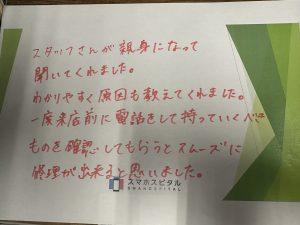 スタッフさんが親身になって
聞いてくれました。
わかりやすく原因も教えてくれました。
一度来店前に電話をして持っていくべき
ものを確認してもらうとスムーズに
修理が出来ると思いました。
スマホスピタル
SMAHOSPITAL